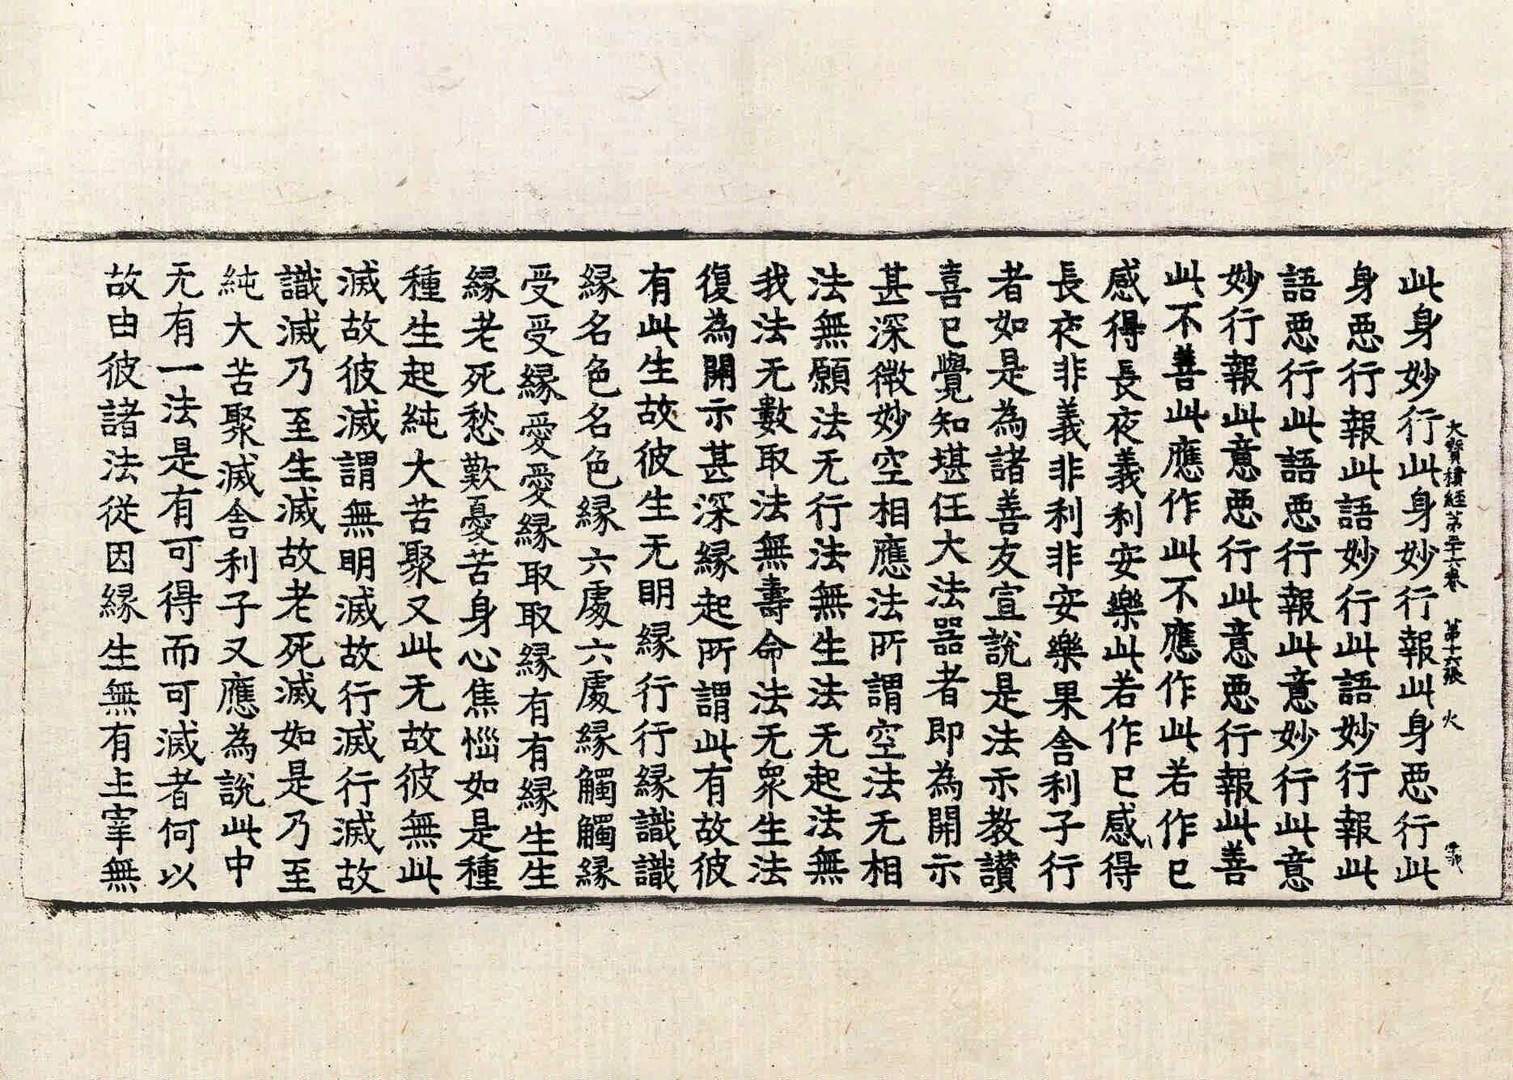 大寶積經第三十六卷 第十六張 火
此身妙行此身妙行報此身悪行此
身悪行報此語妙行此語妙行報此
語悪行此語悪行報此意妙行此意
妙行報此意悪行此意悪行報此善
此不善此應作此不應作此若作已
感得長夜義利安樂此若作已感得
長夜非義非利非安樂果舍利子行
者如是為諸善友宣說是法示教讃
喜已覺知堪任大法器者即為開示
甚深微妙空相應法所謂空法无相
法無願法无行法無生法无起法無
我法无數取法無壽命法无衆生法
復為開示甚深縁起所謂此有故彼
有此生故彼生无明縁行行縁識識
縁名色名色縁六處六處縁觸觸縁
受受縁愛愛縁取取縁有有縁生生
縁老死愁歎憂苦身心焦惱如是種
種生起純大苦聚又此无故彼無此
滅故彼滅謂無明滅故行滅行滅故
識滅乃至生滅故老死滅如是乃至
純大苦聚滅舍利子又應為說此中
无有一法是有可得而可滅者何以
故由彼諸法從因縁生無有主宰無